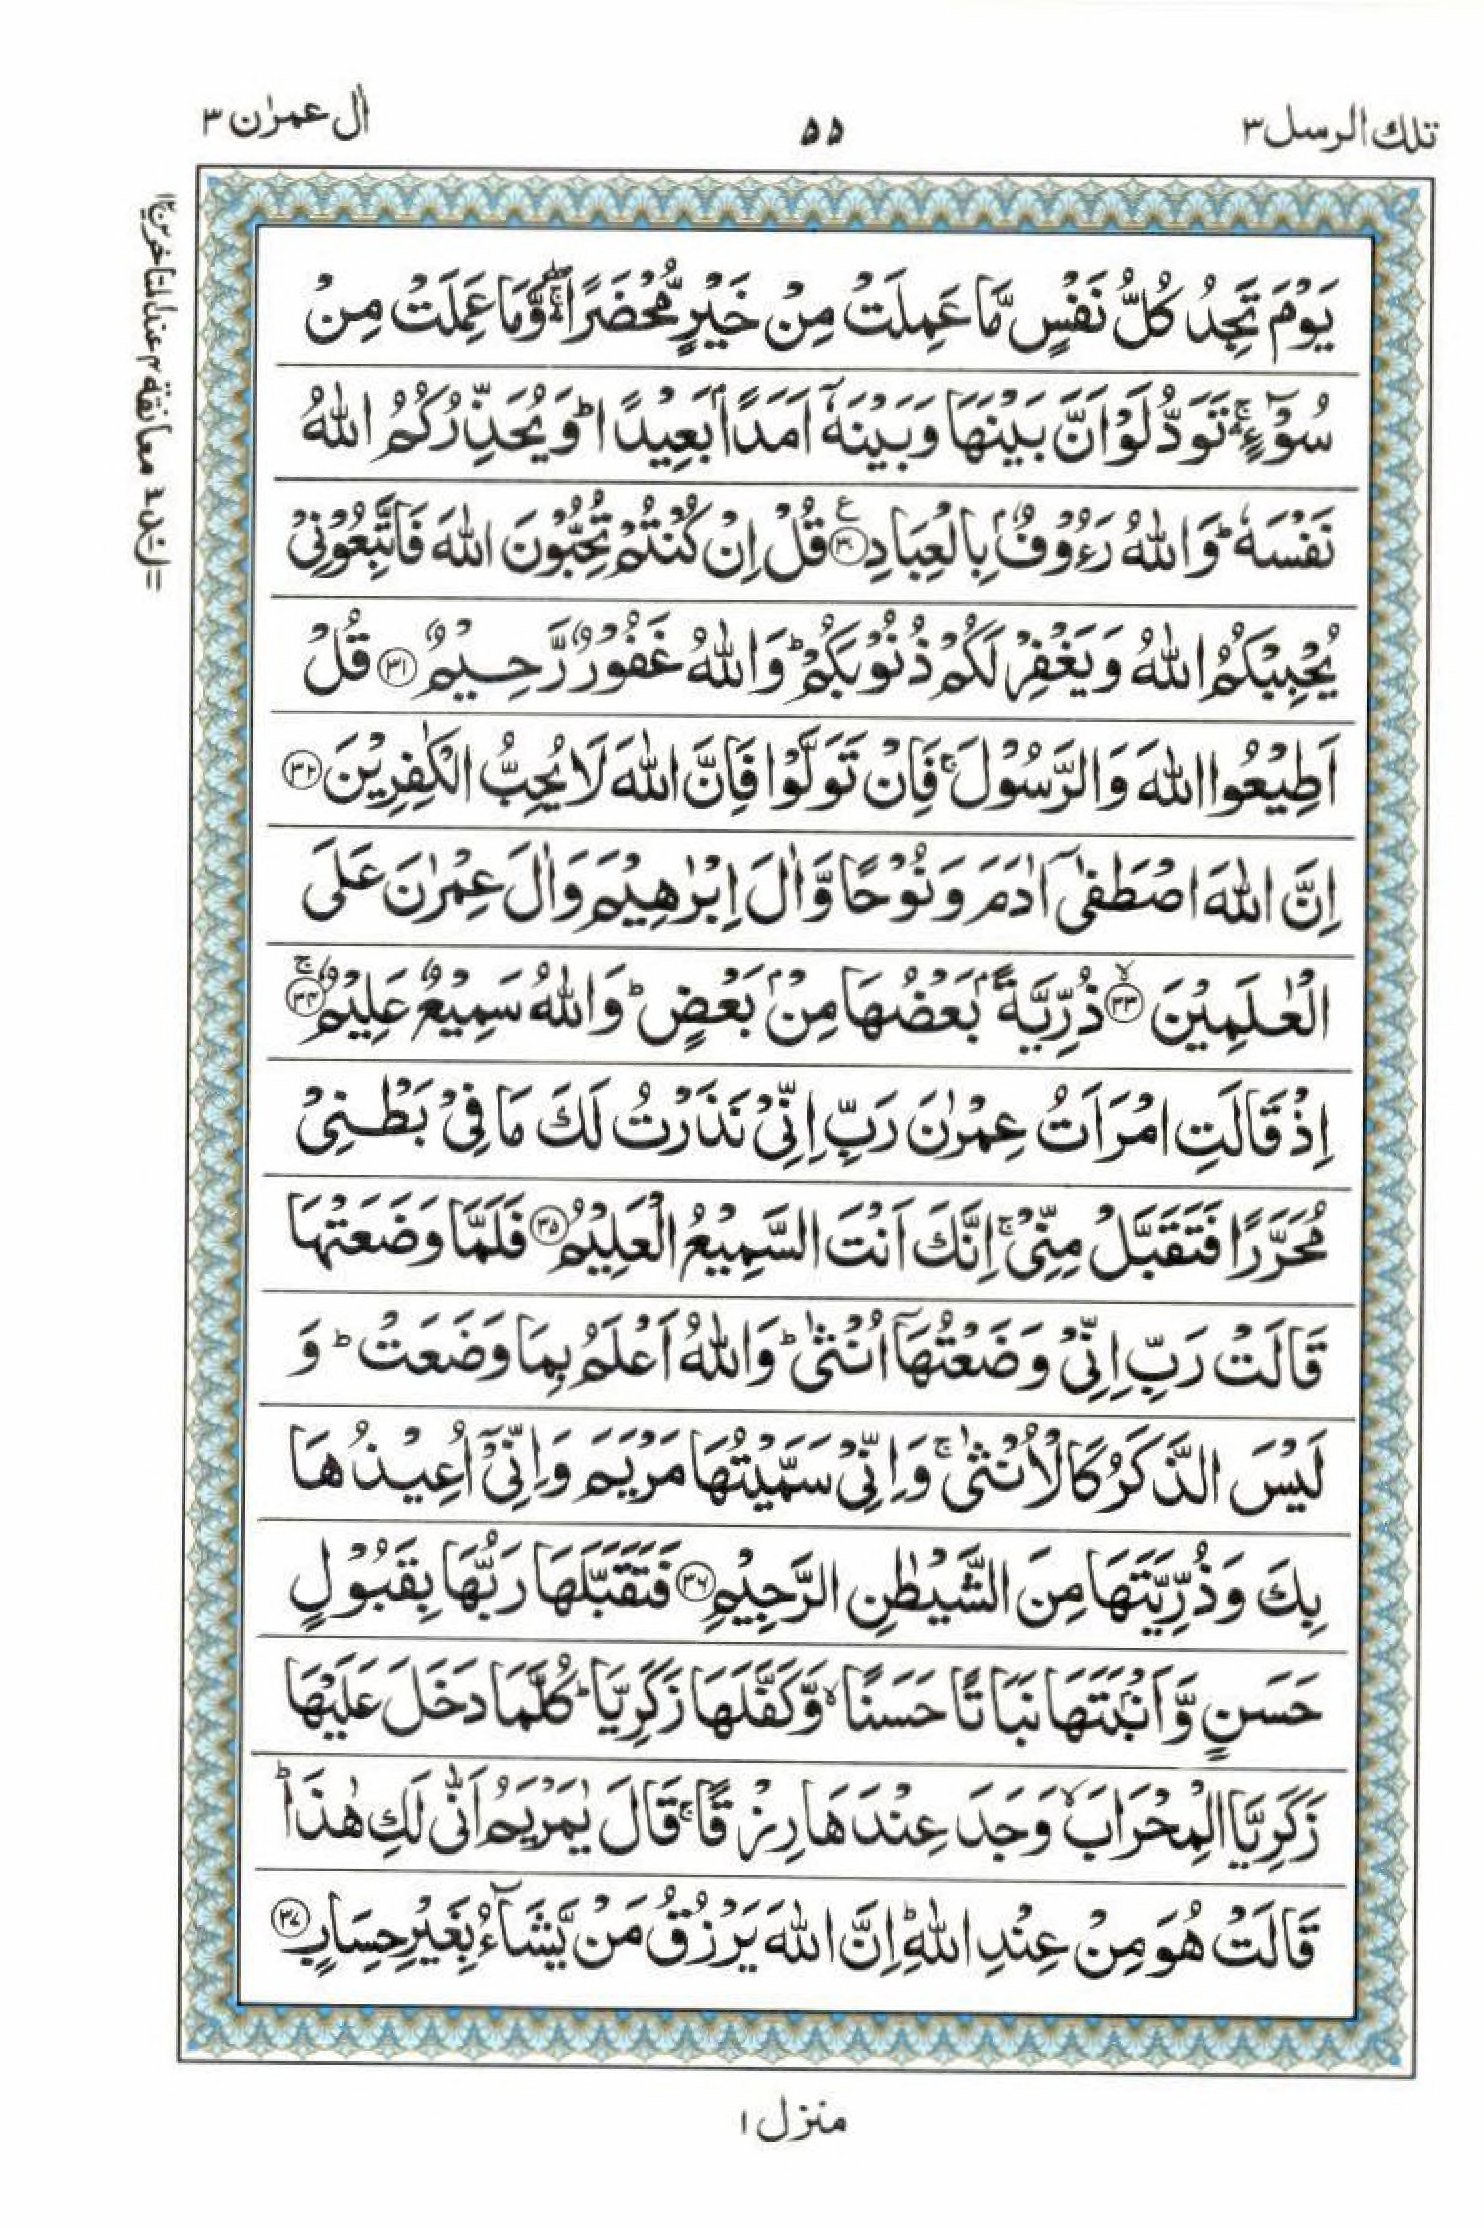 تلك الرسل ٣
۵۵
اٰل عمرٰن ٣
يَوْمَ تَجِدُ كُلُّ نَفْسٍ مَّا عَمِلَتْ مِنْ خَيْرٍ مُّحْضَرًا ۛۚ وَّمَا عَمِلَتْ مِنْ
سُوْٓءٍ ۛۚ تَوَدُّ لَوْ اَنَّ بَيْنَهَا وَبَيْنَهٗٓ اَمَدًاۢ بَعِيْدًا ؕ وَيُحَذِّرُكُمُ اللّٰهُ
نَفْسَهٗ ؕ وَاللّٰهُ رَءُوْفٌۢ بِالْعِبَادِ ﴿۳۰﴾ ع قُلْ اِنْ كُنْتُمْ تُحِبُّوْنَ اللّٰهَ فَاتَّبِعُوْنِيْ
يُحْبِبْكُمُ اللّٰهُ وَيَغْفِرْ لَكُمْ ذُنُوْبَكُمْ ؕ وَاللّٰهُ غَفُوْرٌ رَّحِيْمٌ ﴿۳۱﴾ قُلْ
اَطِيْعُوا اللّٰهَ وَالرَّسُوْلَ ۚ فَاِنْ تَوَلَّوْا فَاِنَّ اللّٰهَ لَا يُحِبُّ الْكٰفِرِيْنَ ﴿۳۲﴾
اِنَّ اللّٰهَ اصْطَفٰىٓ اٰدَمَ وَنُوْحًا وَّاٰلَ اِبْرٰهِيْمَ وَاٰلَ عِمْرٰنَ عَلَى
الْعٰلَمِيْنَ ﴿۳۳﴾ ۙ ذُرِّيَّةًۢ بَعْضُهَا مِنْۢ بَعْضٍ ؕ وَاللّٰهُ سَمِيْعٌ عَلِيْمٌ ﴿۳۴﴾ ۚ
اِذْ قَالَتِ امْرَاَتُ عِمْرٰنَ رَبِّ اِنِّيْ نَذَرْتُ لَكَ مَا فِيْ بَطْنِيْ
مُحَرَّرًا فَتَقَبَّلْ مِنِّيْ ۚ اِنَّكَ اَنْتَ السَّمِيْعُ الْعَلِيْمُ ﴿۳۵﴾ فَلَمَّا وَضَعَتْهَا
قَالَتْ رَبِّ اِنِّيْ وَضَعْتُهَآ اُنْثٰى ؕ وَاللّٰهُ اَعْلَمُ بِمَا وَضَعَتْ ؕ وَ
لَيْسَ الذَّكَرُ كَالْاُنْثٰى ۚ وَاِنِّيْ سَمَّيْتُهَا مَرْيَمَ وَاِنِّيْٓ اُعِيْذُهَا
بِكَ وَذُرِّيَّتَهَا مِنَ الشَّيْطٰنِ الرَّجِيْمِ ﴿۳۶﴾ فَتَقَبَّلَهَا رَبُّهَا بِقَبُوْلٍ
حَسَنٍ وَّاَنْۢبَتَهَا نَبَاتًا حَسَنًا ۙ وَّكَفَّلَهَا زَكَرِيَّا ؕ كُلَّمَا دَخَلَ عَلَيْهَا
زَكَرِيَّا الْمِحْرَابَ ۙ وَجَدَ عِنْدَهَا رِزْقًا ۚ قَالَ يٰمَرْيَمُ اَنّٰى لَكِ هٰذَا ؕ
قَالَتْ هُوَ مِنْ عِنْدِ اللّٰهِ ؕ اِنَّ اللّٰهَ يَرْزُقُ مَنْ يَّشَآءُ بِغَيْرِ حِسَابٍ ﴿۳۷﴾
منزل ١
معانقة ٣ عند المتاخرين ١٢